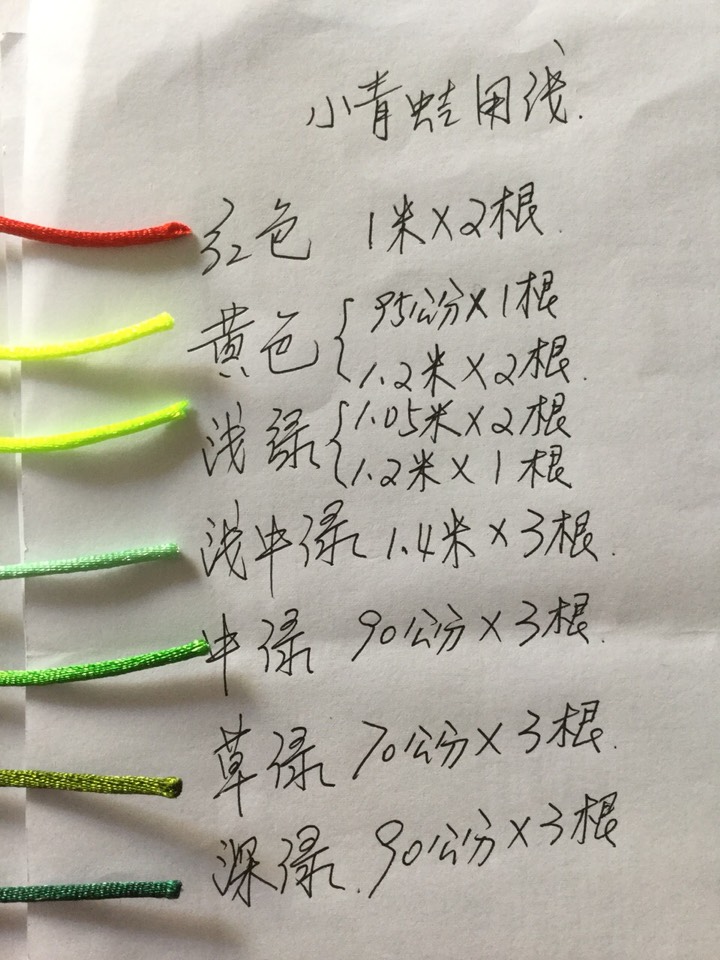 小青蛙用线.
红色 1米×2根.
黄色{95公分×1根
1.2米×2根.
浅绿{1.05米×2根
1.2米×1根
浅中绿 1.4米×3根.
中绿 90公分×3根.
草绿 70公分×3根.
深绿. 90公分×3根